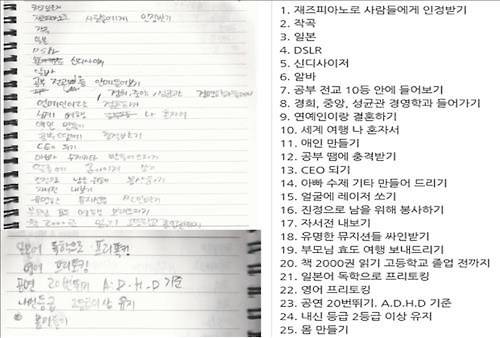 사람들에게 인정받기
작곡
일본
DSLR
신디사이저
알바
공부 전교 10등 안에 들어보기
연예인이랑 결혼하기
세계 여행 나 혼자서
애인 만들기
공부 땜에 충격받기
CEO 되기
얼굴에 레이저 쏘기
자서전 내보기
일본어 독학으로 프리토킹
영어 프리토킹
공연 20번뛰기 A.D.H.D 기준
내신등급 2등급이상 유지
몸만들기
1. 재즈피아노로 사람들에게 인정받기
2. 작곡
3. 일본
4. DSLR
5. 신디사이저
6. 알바
7. 공부 전교 10등 안에 들어보기
8. 경희, 중앙, 성균관 경영학과 들어가기
9. 연예인이랑 결혼하기
10. 세계 여행 나 혼자서
11. 애인 만들기
12. 공부 땜에 충격받기
13. CEO 되기
14. 아빠 수제 기타 만들어 드리기
15. 얼굴에 레이저 쏘기
16. 진정으로 남을 위해 봉사하기
17. 자서전 내보기
18. 유명한 뮤지션들 싸인받기
19. 부모님 효도 여행 보내드리기
20. 책 2000권 읽기 고등학교 졸업 전까지
21. 일본어 독학으로 프리토킹
22. 영어 프리토킹
23. 공연 20번뛰기. A.D.H.D 기준
24. 내신 등급 2등급 이상 유지
25. 몸 만들기